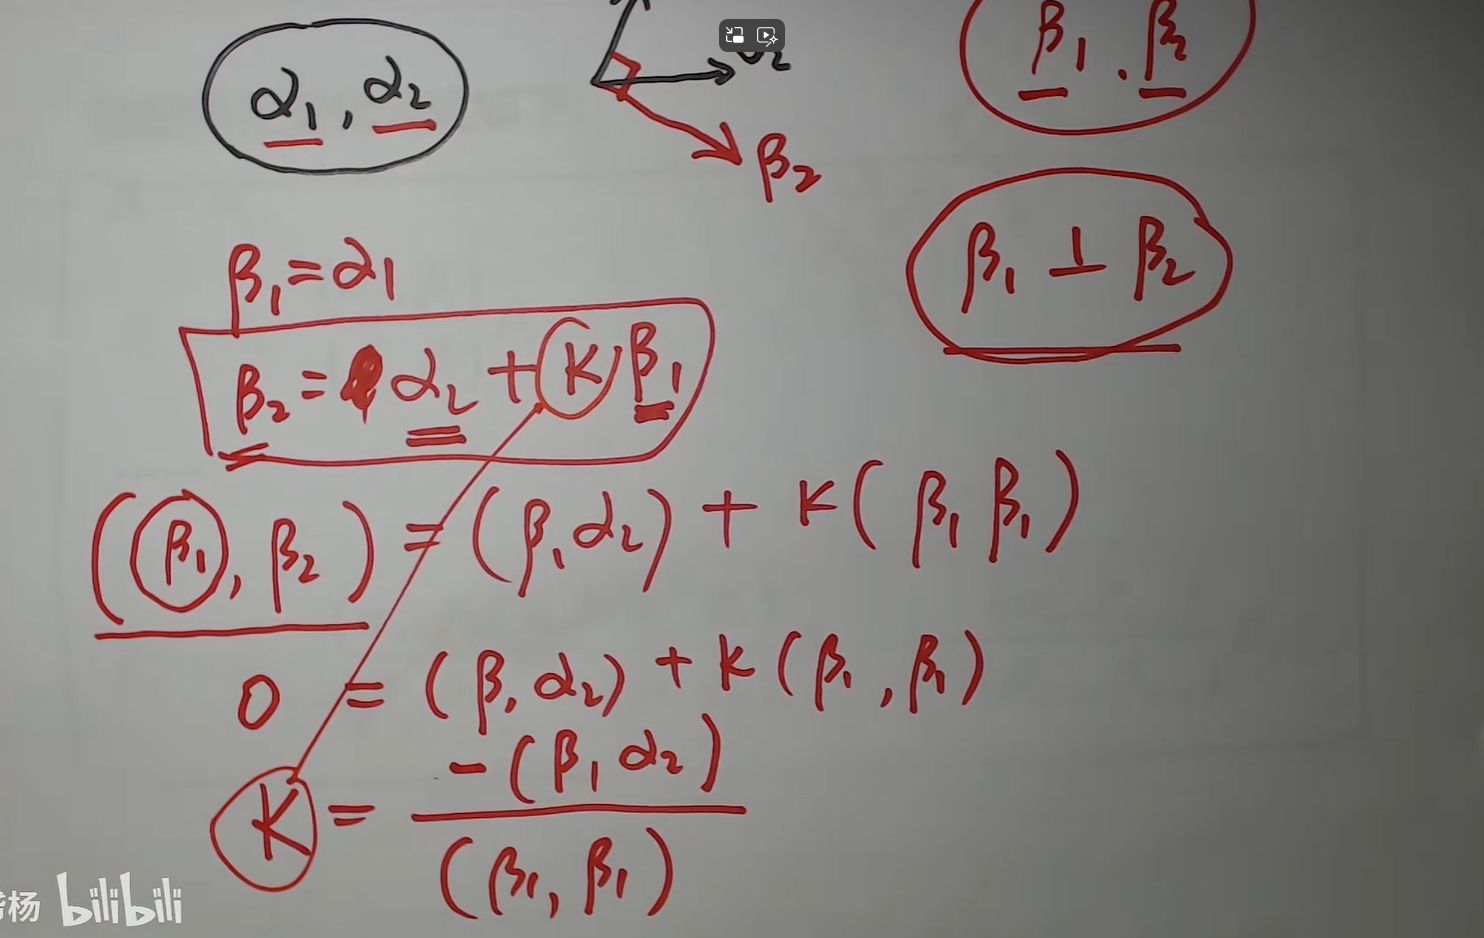 α₁, α₂
α₂
β₁, β₂
β₂
β₁ ⊥ β₂
β₁ = α₁
β₂ = α₂ + K β₁
(β₁, β₂) = (β₁ α₂) + K(β₁ β₁)
0 = (β₁ α₂) + K(β₁, β₁)
K = -(β₁ α₂)
(β₁, β₁)
杨 bilibili